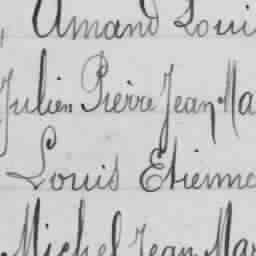 , Amand Loui
Julien Pierre Jean Ma
Louis Etienne
Michel Jean Mar